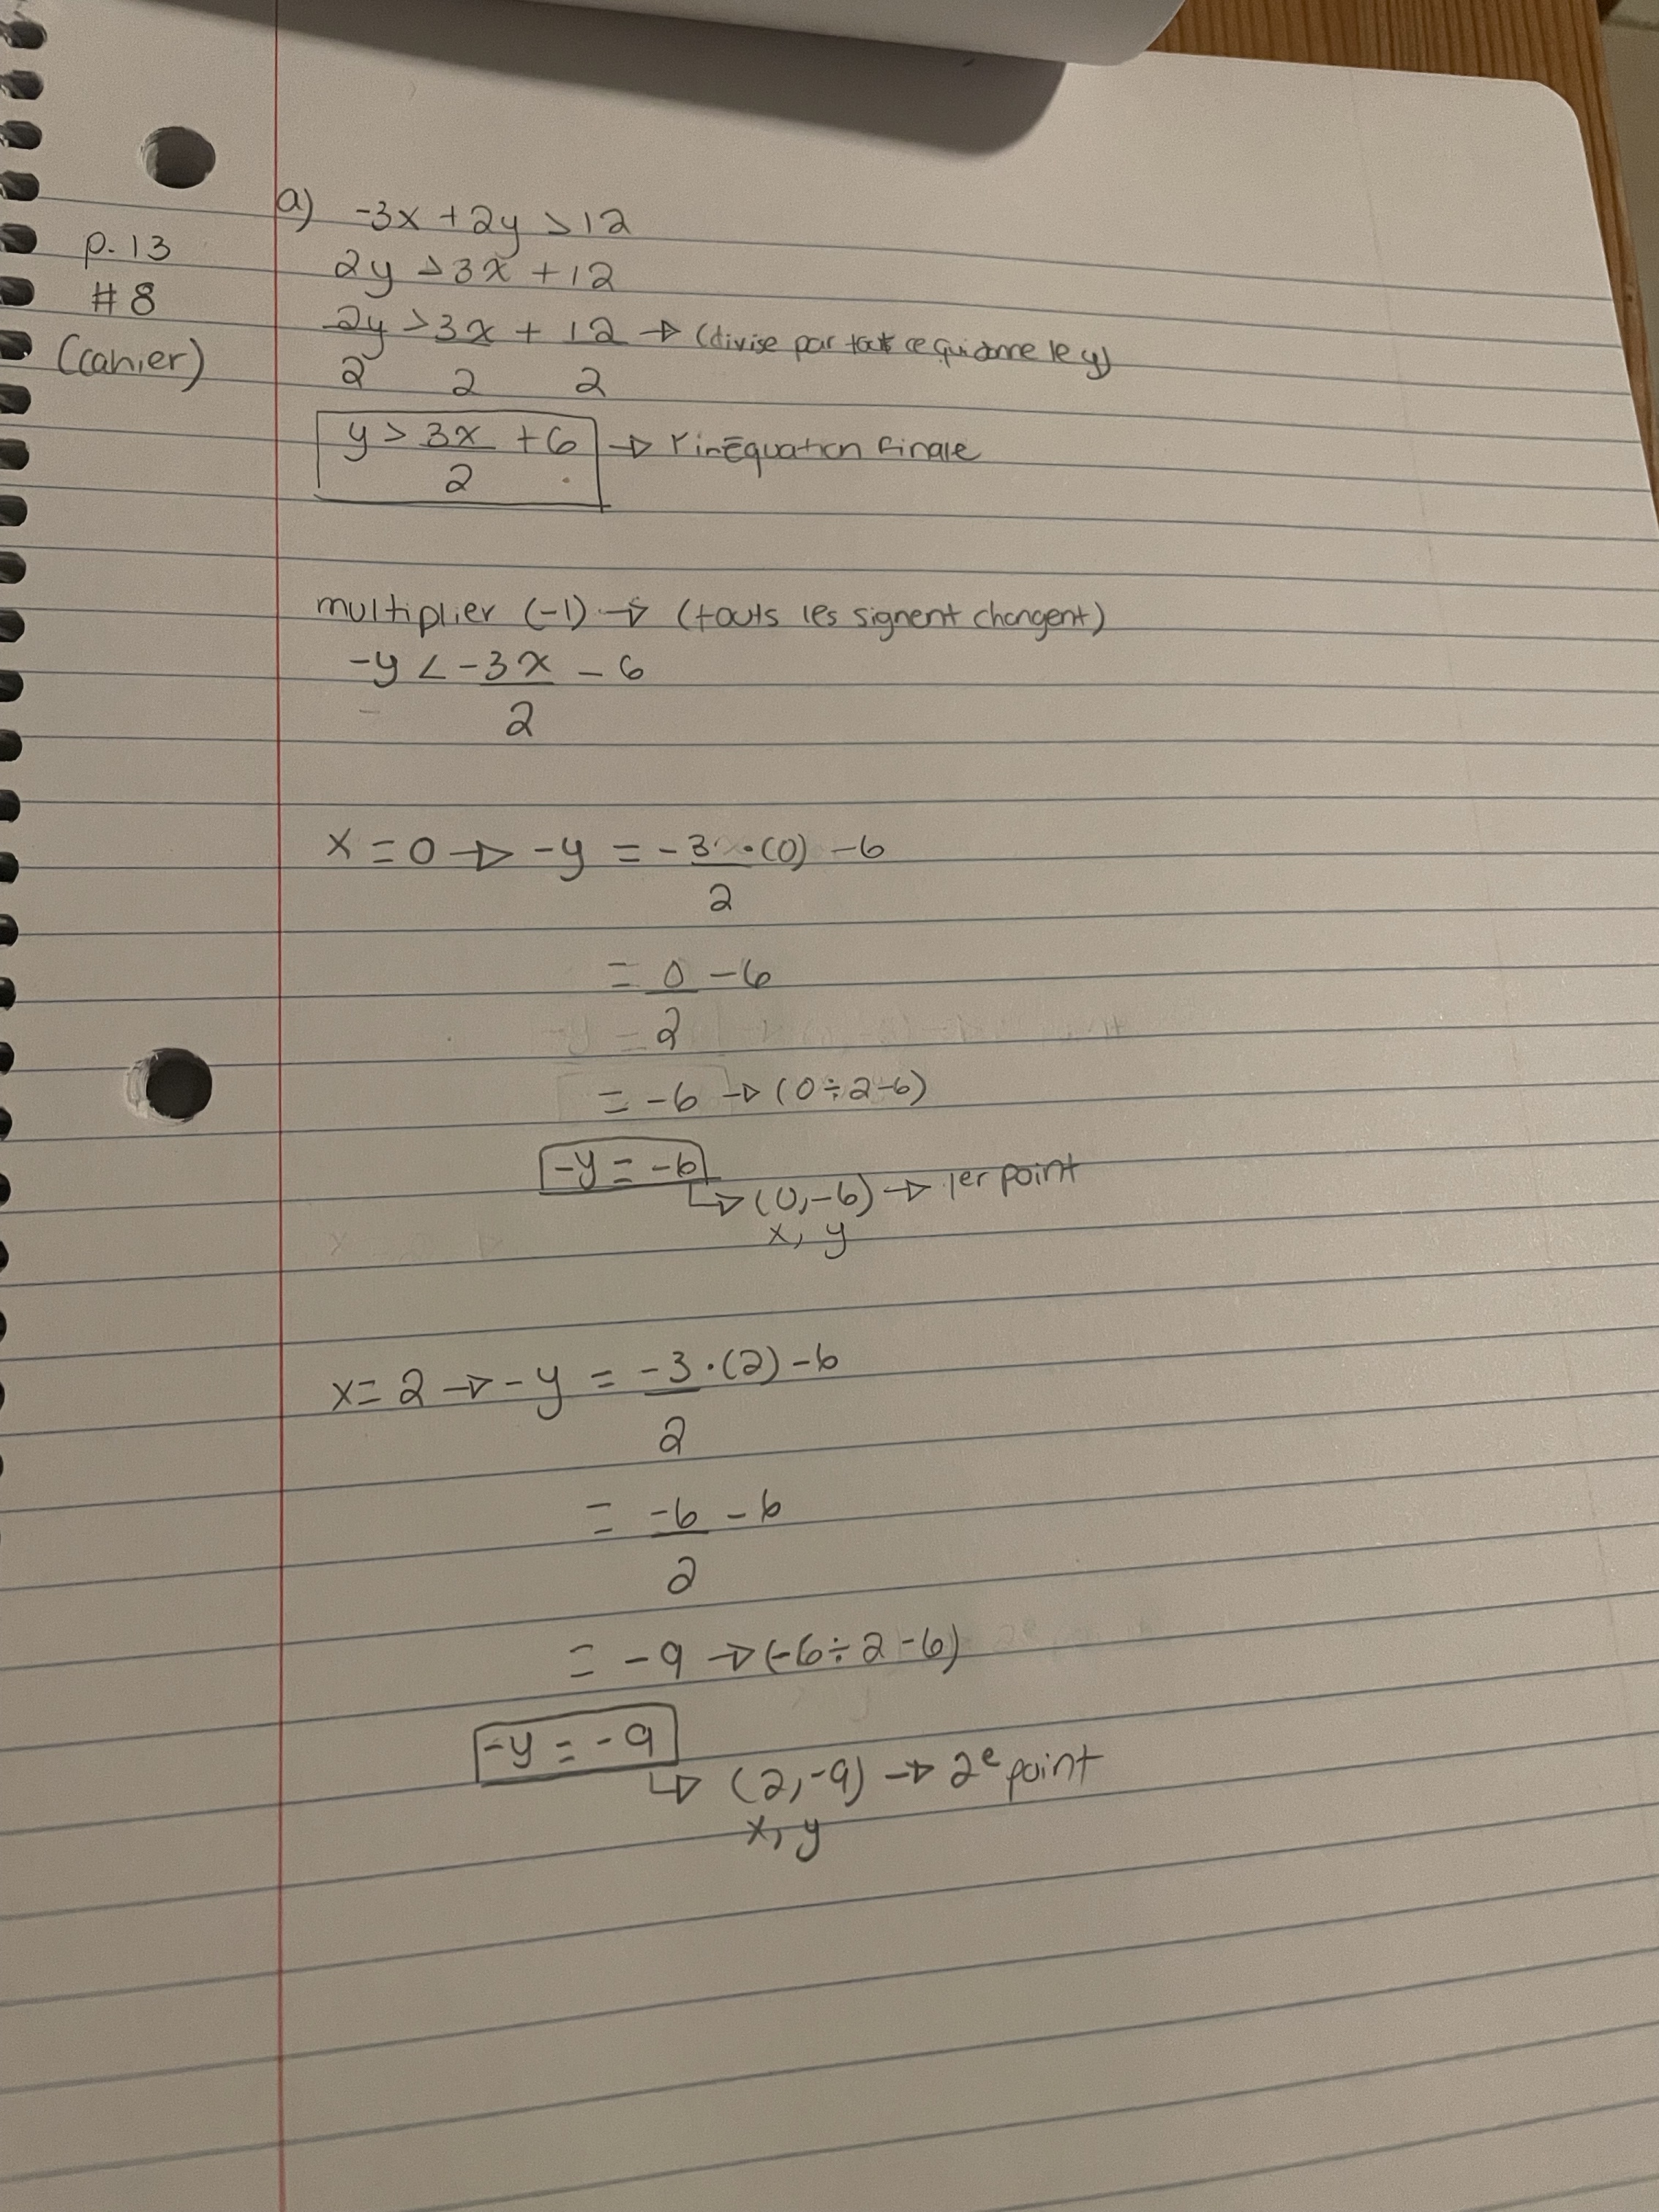 p. 13
#8
(cahier)
a) -3x + 2y > 12
2y > 3x + 12
2y > 3x + 12 → (divise par tout ce qui donne le y)
2 2 2
y > 3x + 6 → l'inÉquation finale
2
multiplier (-1) → (touts les signent changent)
-y < -3x - 6
2
x = 0 → -y = -3 · (0) - 6
2
= 0 - 6
2
= -6 → (0 ÷ 2 - 6)
-y = -6
↳ (0, -6) → 1er point
x, y
x = 2 → -y = -3 · (2) - 6
2
= -6 - 6
2
= -9 → (-6 ÷ 2 - 6)
-y = -9
↳ (2, -9) → 2e point
x, y